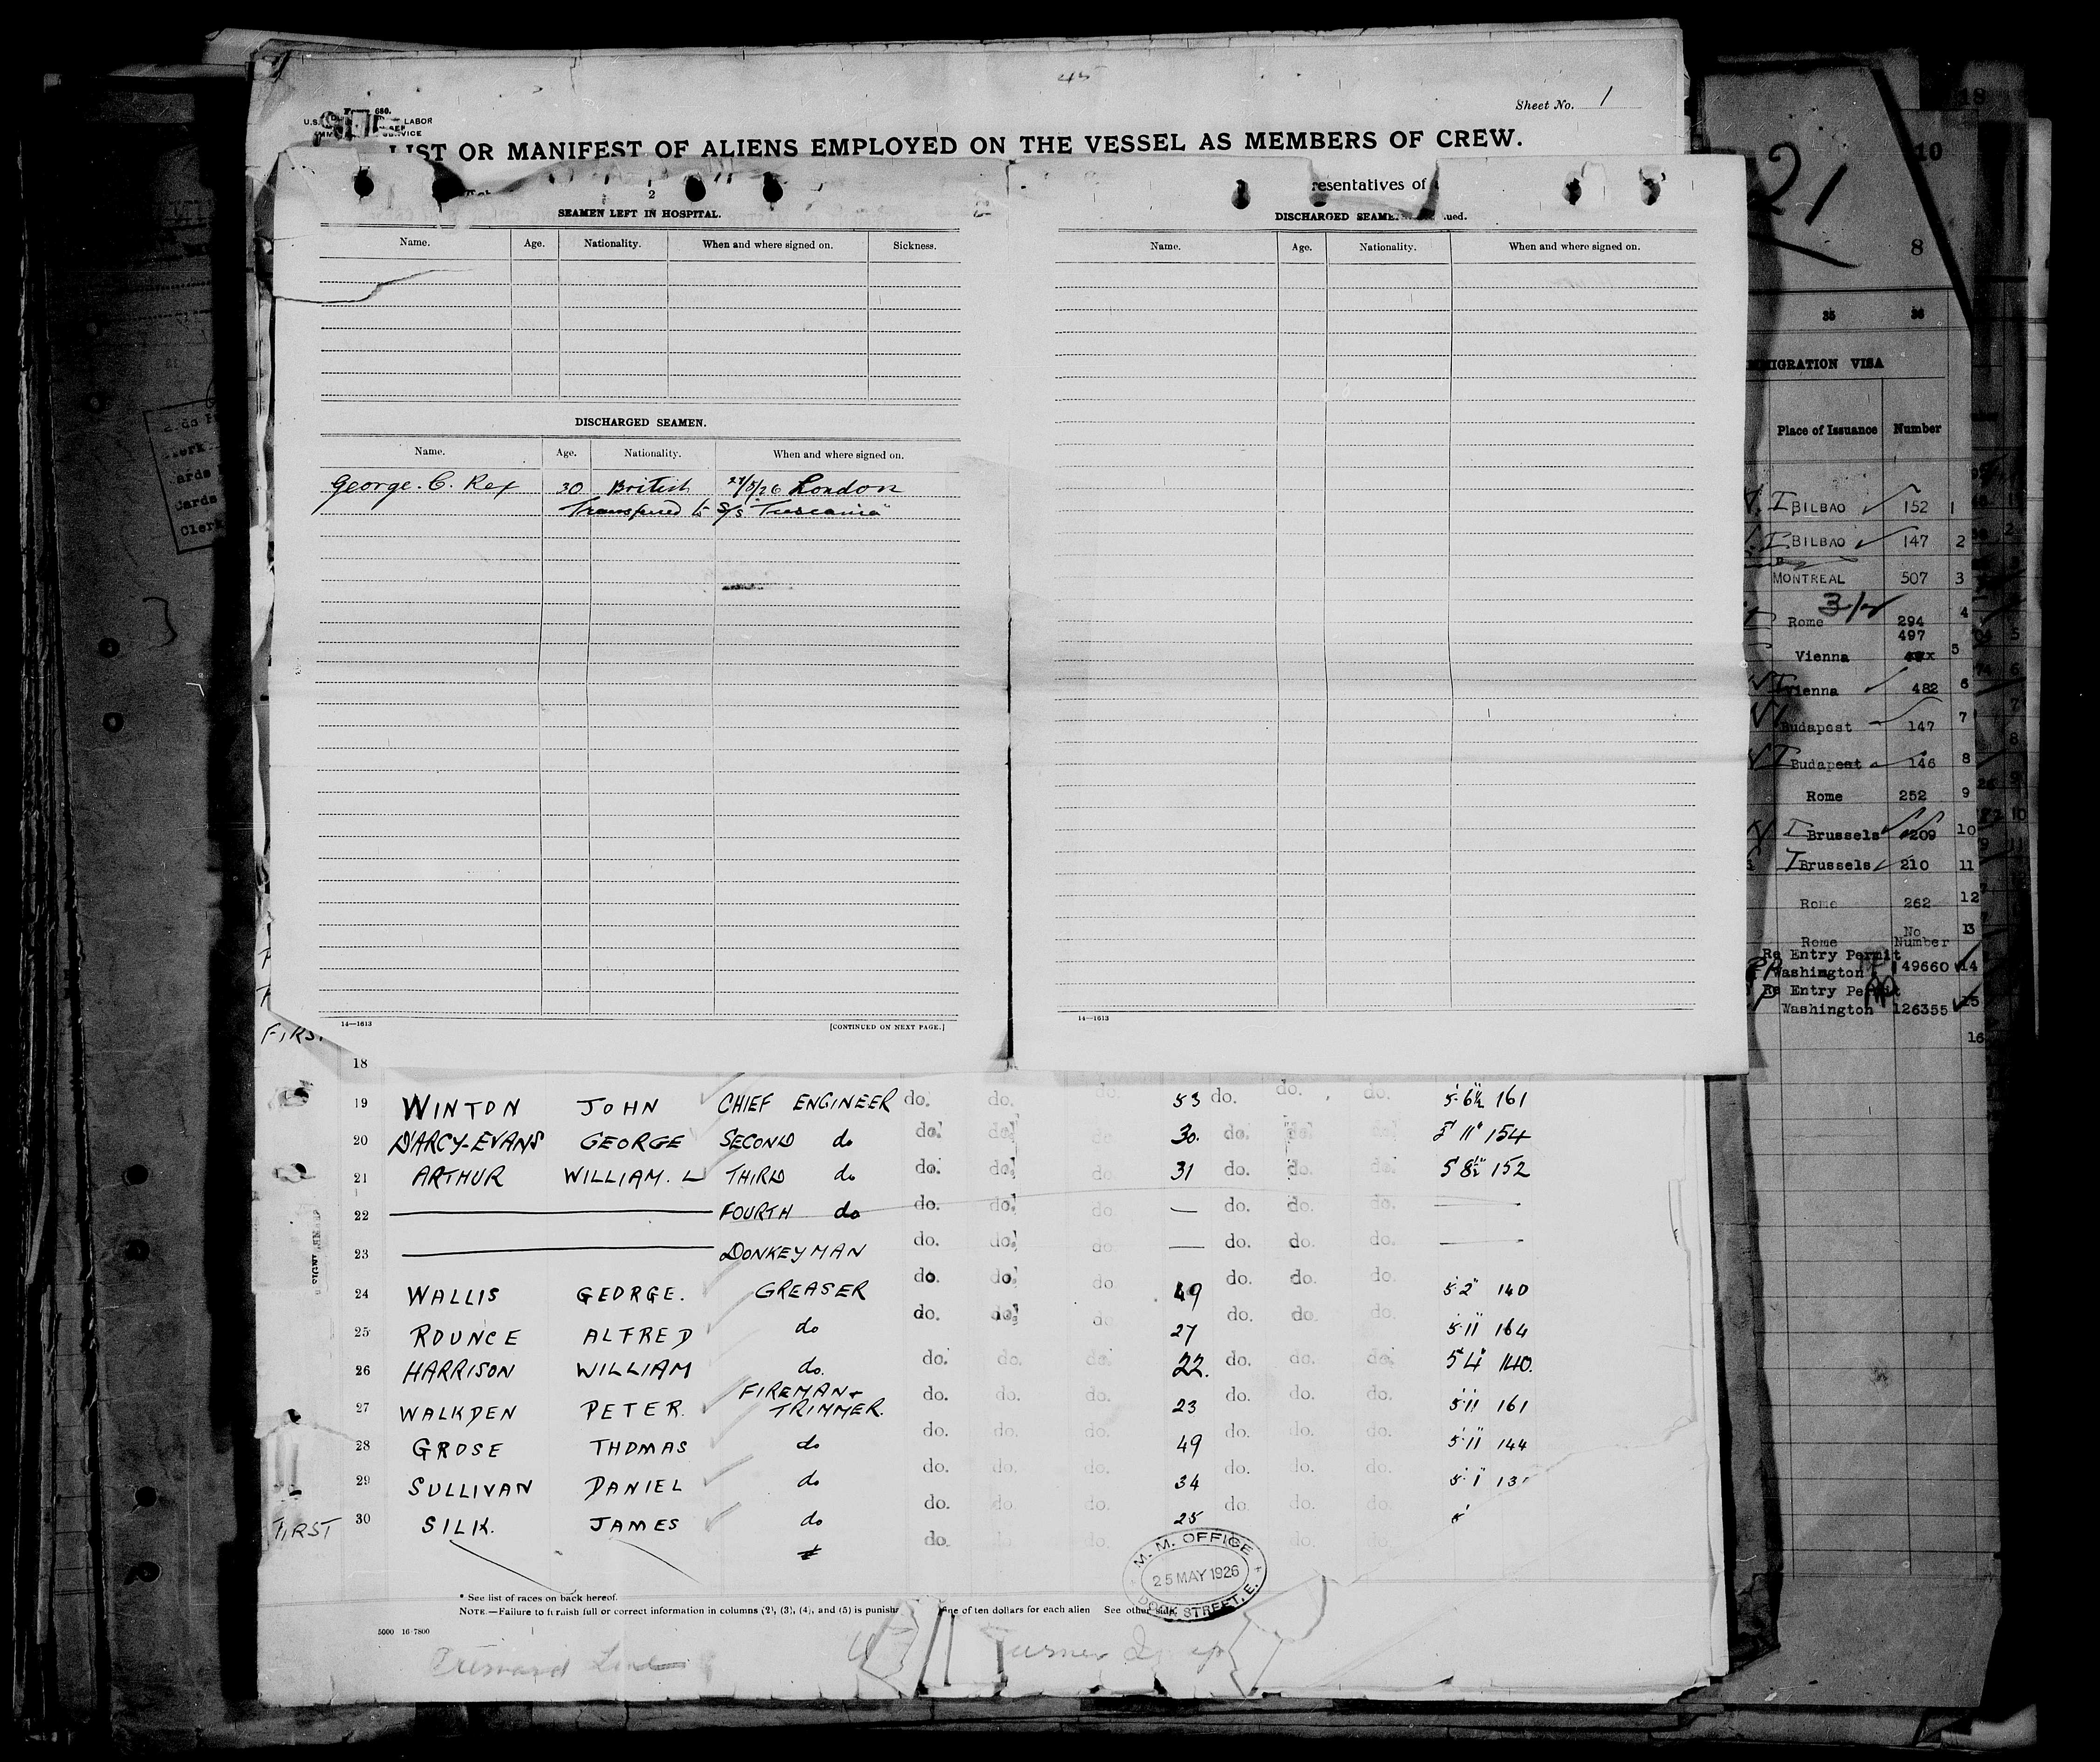 45
Sheet No. 1
680.
U.S. LABOR
SERVICE
LIST OR MANIFEST OF ALIENS EMPLOYED ON THE VESSEL AS MEMBERS OF CREW.
2
SEAMEN LEFT IN HOSPITAL.
Name. Age. Nationality. When and where signed on. Sickness.
DISCHARGED SEAMEN.
Name. Age. Nationality. When and where signed on.
George. C. Rex 30 British London
Transferred to S/s "Tuscania"
14—1613 [CONTINUED ON NEXT PAGE.]
resentatives of
DISCHARGED SEAME ued.
Name. Age. Nationality. When and where signed on.
14—1613
FIRST
18
19 WINTON JOHN CHIEF ENGINEER do. do. do. 53 do. do. do. 5'6½" 161
20 D'ARCY-EVANS GEORGE SECOND do do. do. do. 30. do. do. do. 5' 11" 154
21 ARTHUR WILLIAM. L THIRD do do. do. do. 31 do. do. do. 5'8½" 152
22 — FOURTH do do. do. do. — do. do. do. —
23 — DONKEYMAN do. do. do — do. do. do. —
24 WALLIS GEORGE. GREASER do. do. do 49 do. do. do. 5'2" 140
25 ROUNCE ALFRED do do. do. do 27 do. do. do. 5'11" 164
26 HARRISON WILLIAM do. do. do. do. 22. do. do. do. 5'4" 140.
27 WALKDEN PETER. FIREMAN + TRIMMER. do. do. do. 23 do. do. do. 5'11" 161
28 GROSE THOMAS do do. do. do. 49 do. do. do. 5'11" 144
29 SULLIVAN DANIEL do do. do. do. 34 do. do. do. 5'1" 13
FIRST 30 SILK. JAMES do do. do. do. 25 do. do. do. 5'
do. do. do. do.
M. M. OFFICE
25 MAY 1926
DOCK STREET, E.
* See list of races on back hereof.
NOTE.—Failure to furnish full or correct information in columns (2), (3), (4), and (5) is punish ine of ten dollars for each alien See other side.
5000 16-7800
Line
21
10
8
35 36
IMMIGRATION VISA
Place of Issuance Number
I BILBAO 152 1
I BILBAO 147 2
MONTREAL 507 3
Rome 294 4
497
Vienna 5
Vienna 482 6
Budapest 147 7
Budapest 146 8
Rome 252 9
I Brussels 209 10
I Brussels 210 11
Rome 262 12
Rome No Number 13
Re Entry Permit
Washington 149660 14
Re Entry Permit
Washington 126355 15
16